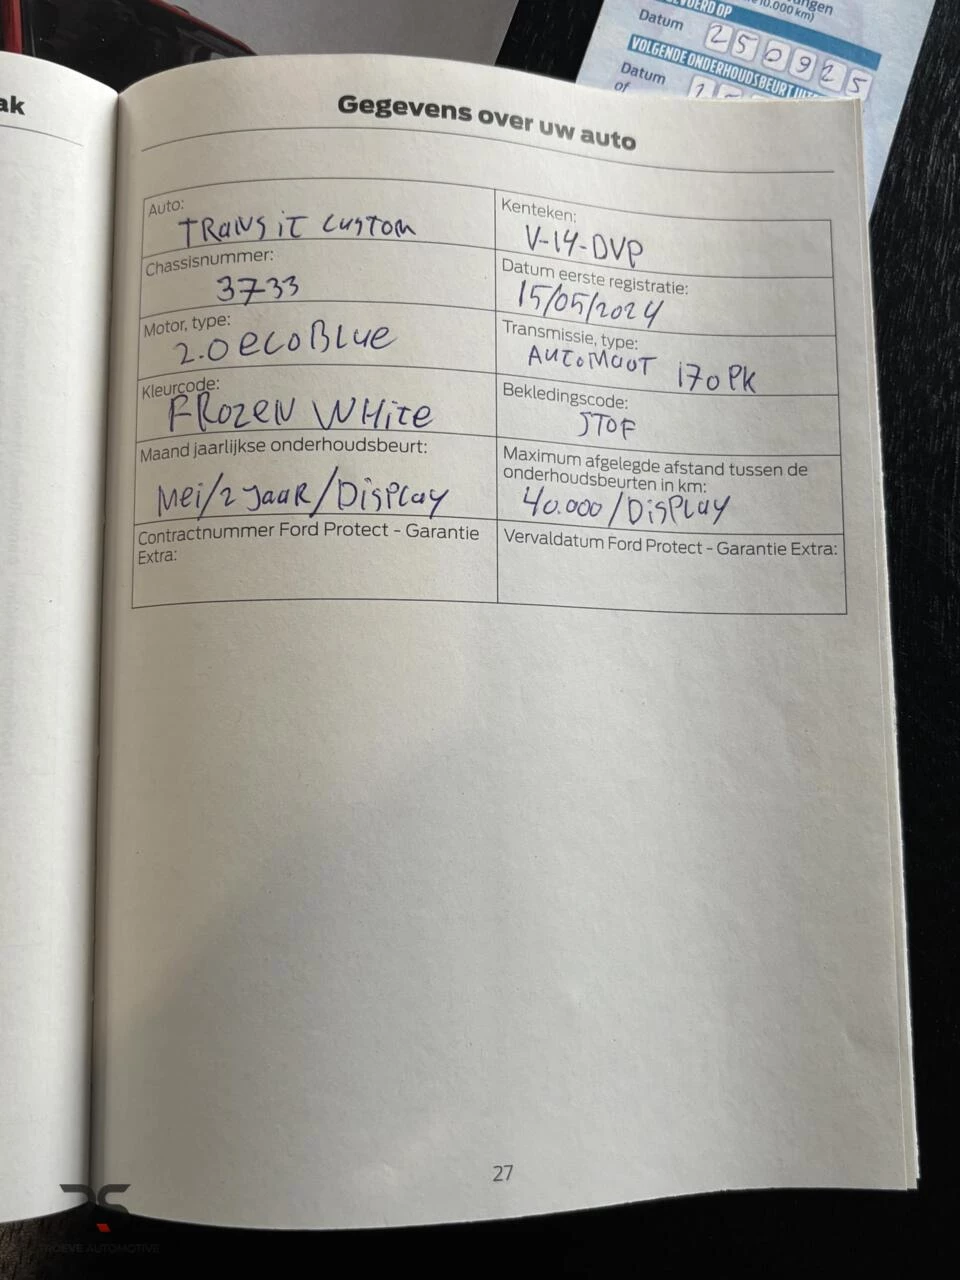 ak
Gegevens over uw auto
Auto:
TRANSiT CUSTOM
Kenteken:
V-14-DVP
Chassisnummer:
3733
Datum eerste registratie:
15/05/2024
Motor, type:
2.0 ecoBlue
Transmissie, type:
AUTOMAAT 170 PK
Kleurcode:
FROZEN WHITE
Bekledingscode:
STOF
Maand jaarlijkse onderhoudsbeurt:
Mei/2 JAAR/Display
Maximum afgelegde afstand tussen de
onderhoudsbeurten in km:
40.000/DisPlay
Contractnummer Ford Protect - Garantie
Extra:
Vervaldatum Ford Protect - Garantie Extra:
27
10.000 km)
OP
Datum 250925
VOLGENDE ONDERHOUDSBEURT
Datum
of
ROEVE AUTOMOTIVE